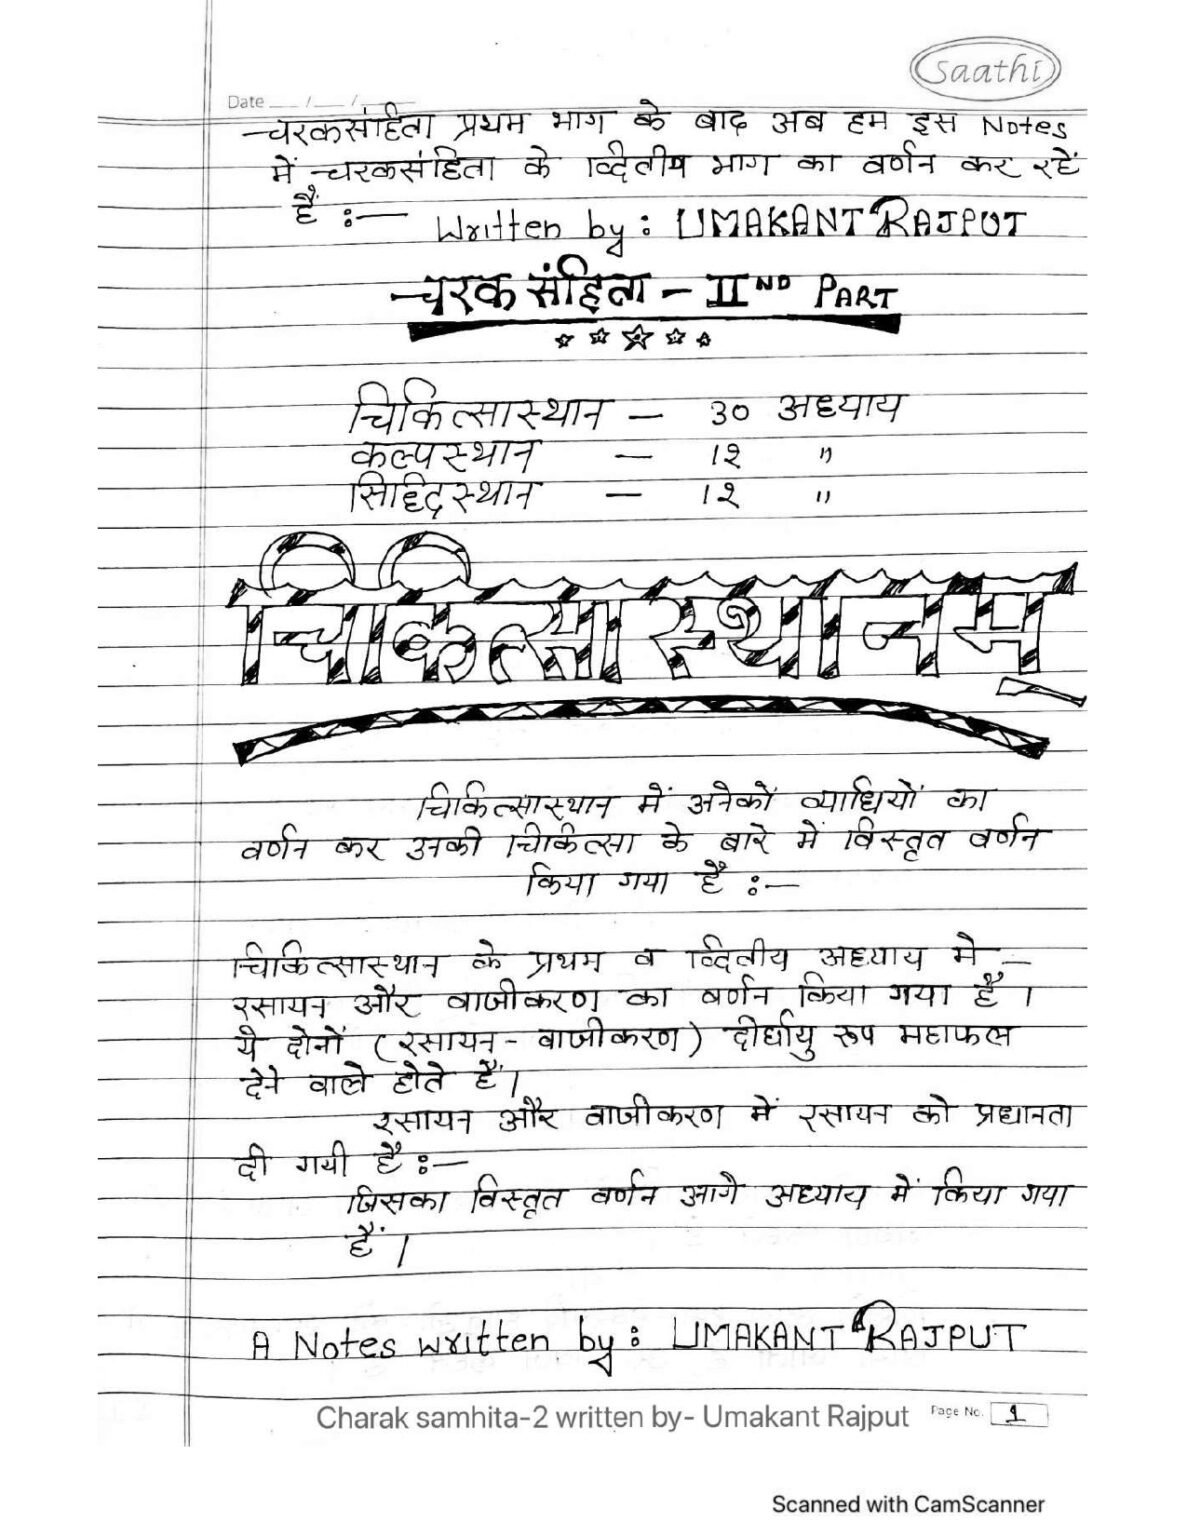 Saathi
Date __/__/__
चरकसंहिता प्रथम भाग के बाद अब हम इस Notes
में चरकसंहिता के द्वितीय भाग का वर्णन कर रहें
हैं :—
Written by : UMAKANT RAJPUT
चरक संहिता - IIND PART
चिकित्सास्थान — 30 अध्याय
कल्पस्थान — १२ "
सिद्धिस्थान — १२ "
चिकित्सास्थानम्
चिकित्सास्थान में अनेकों व्याधियों का
वर्णन कर उनकी चिकित्सा के बारे में विस्तृत वर्णन
किया गया है :—
चिकित्सास्थान के प्रथम व द्वितीय अध्याय मे —
रसायन और वाजीकरण का वर्णन किया गया है ।
ये दोनों (रसायन - वाजीकरण) दीर्घायु रूप महाफल
देने वाले होते हैं।
रसायन और वाजीकरण में रसायन को प्रधानता
दी गयी है :—
जिसका विस्तृत वर्णन आगे अध्याय में किया गया
हैं ।
A Notes written by : UMAKANT RAJPUT
Charak samhita-2 written by- Umakant Rajput
Page No. 1
Scanned with CamScanner